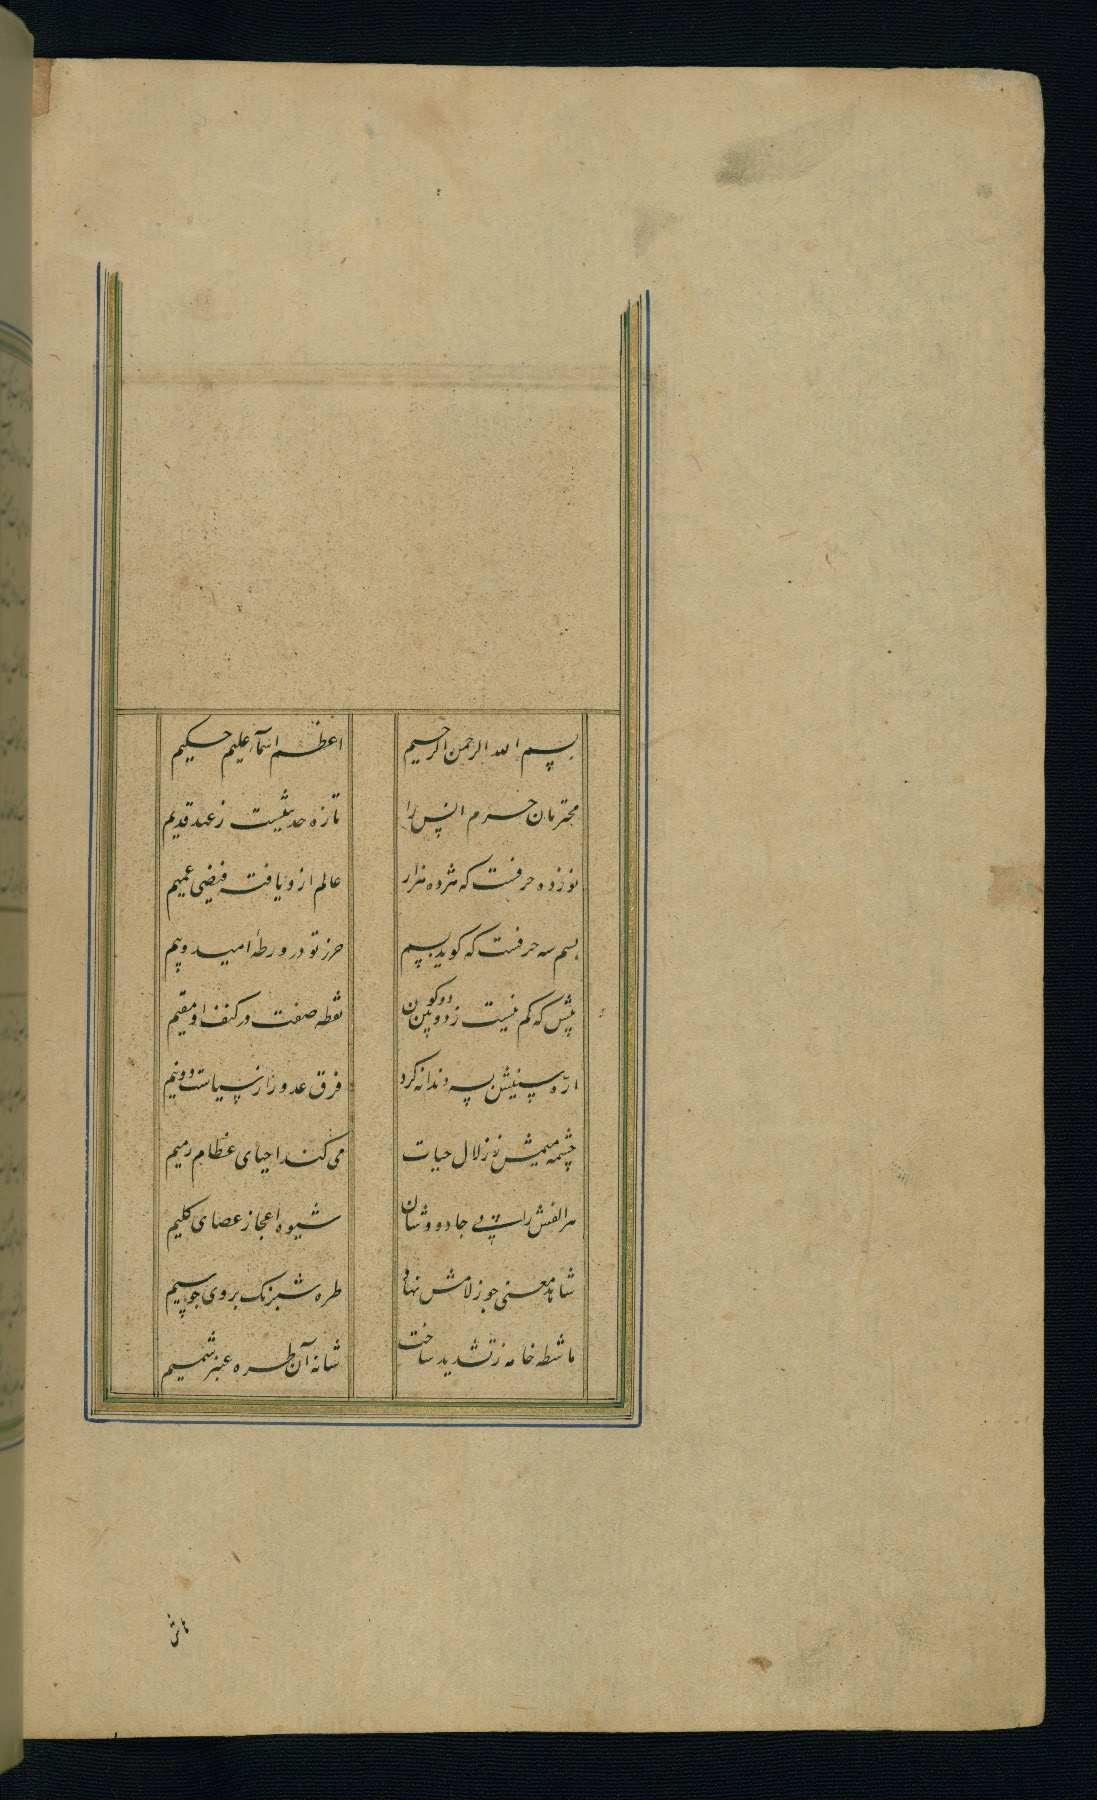 بسم الله الرحمن الرحیم اعظم اسماء علیم حکیم
محترمان حرم انس را تازه حدیثیست ز عهد قدیم
نوزده حرفست که هژده هزار عالم ازو یافته فیضی عمیم
بسم سه حرفست که کوید بسم حرز تو در ورطهٔ امید وبیم
بیش که کم نیست ز دو کون نقطه صفت در کنف او مقیم
ارّهٔ سینش بسه دندانه کرد فرق عدو را ز سیاست دو نیم
چشمه میمش ز زلال حیات می کند احیای عظام رمیم
هر الفش راست پی جادووشان شیوه اعجاز عصای کلیم
شاهد معنی چو ز لامش نهاد طره شبرنک بروی چو سیم
ماشطه خامه ز تشدید ساخت شانه آن طره عنبر شمیم